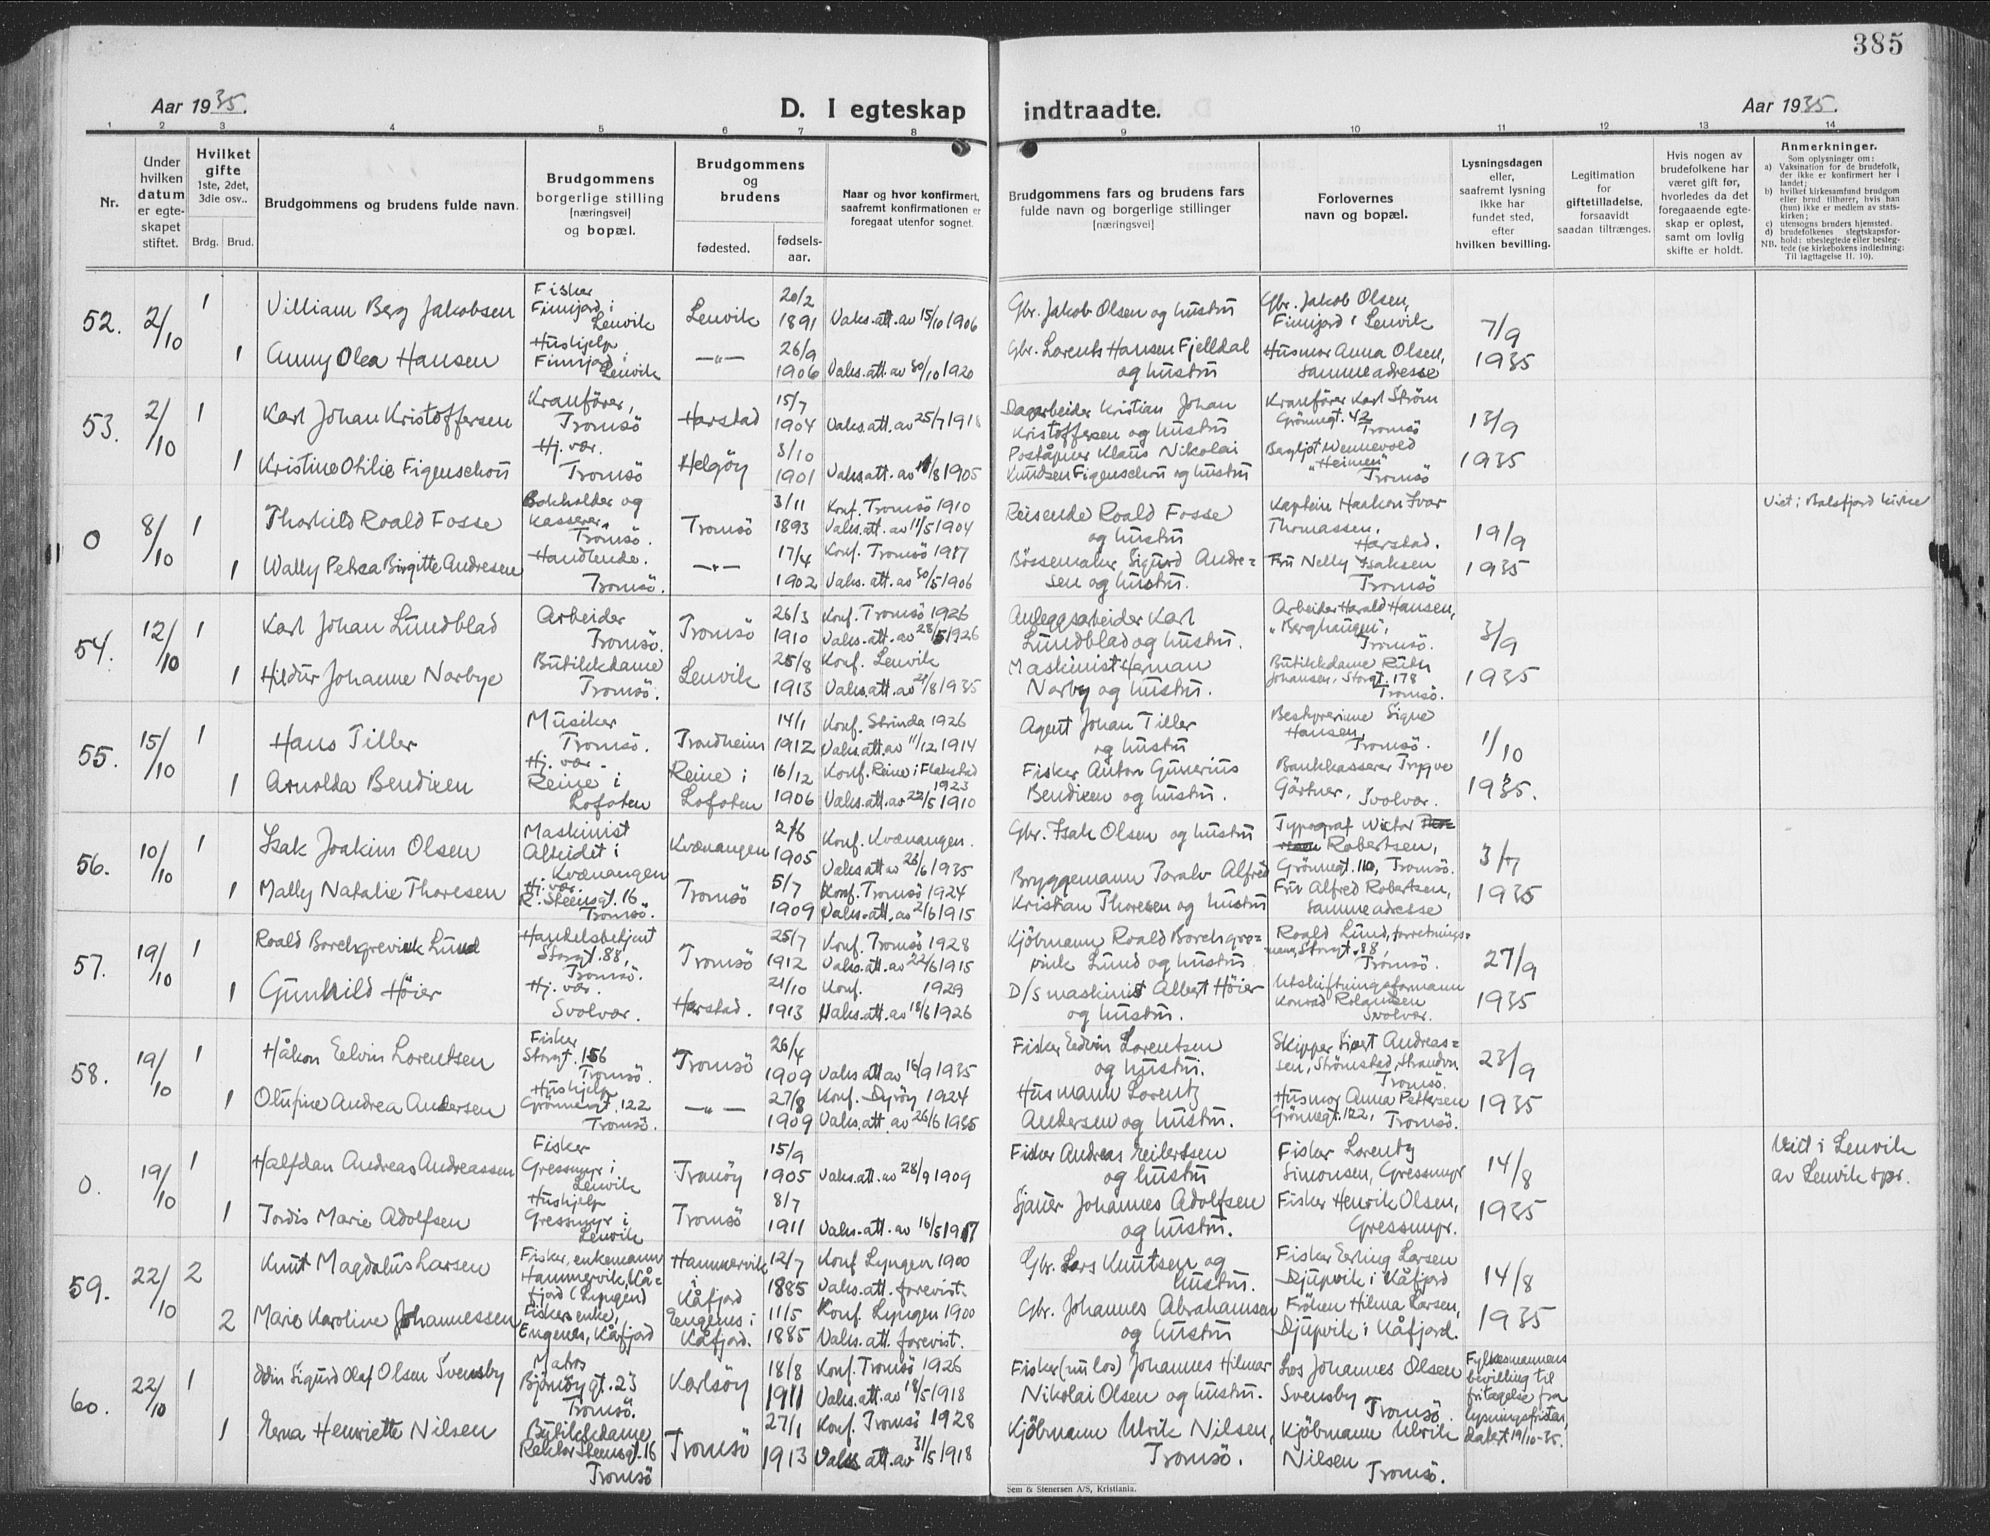 385
Aar 1935.
D. I egteskap indtraadte.
Aar 1935.
1 2 3 4 5 6 7 8 9 10 11 12 13 14
Nr.
Under hvilken datum er egte-skapet stiftet.
Hvilket gifte
1ste, 2det, 3die osv..
Brdg. Brud.
Brudgommens og brudens fulde navn.
Brudgommens borgerlige stilling [næringsvei] og bopæl.
Brudgommens og brudens
fødested.
fødsels-aar.
Naar og hvor konfirmert, saafremt konfirmationen er foregaat utenfor sognet.
Brudgommens fars og brudens fars fulde navn og borgerlige stillinger [næringsvei]
Forlovernes navn og bopæl.
Lysningsdagen eller, saafremt lysning ikke har fundet sted, efter hvilken bevilling.
Legitimation for giftetilladelse, forsaavidt saadan tiltrænges.
Hvis nogen av brudefolkene har været gift før, hvorledes da det foregaaende egte-skap er opløst, samt om lovlig skifte er holdt.
Anmerkninger.
Som oplysninger om:
a) Vaksination for de brudefolk, der ikke er konfirmert her i landet;
b) hvilket kirkesamfund brudgom eller brud tilhører, hvis han (hun) ikke er medlem av stats-kirken;
c) utensogns bruders hjemsted.
d) brudefolkenes slegtskapsfor-hold: ubeslegtede eller besleg-tede (se kirkebokens indledning:
NB. Til iagttagelse II. 10).
52. 2/10 1 Villiam Berg Jakobsen Fisker Finnjord i Lenvik Lenvik 20/2 1891 Vaks.att.av 15/10 1906 Gbr. Jakob Olsen og hustru Gbr. Jakob Olsen, Finnjord i Lenvik 7/9 1935
1 Anny Olea Hansen Hushjelp Finnjord i Lenvik —"— 26/9 1906 Vaks.att.av 30/10 1920 Gbr. Lorents Hansen Fjelldal og hustru Husmor Anna Olsen, samme adresse
53. 2/10 1 Karl Johan Kristoffersen Kranfører, Tromsö Harstad 15/7 1904 Vaks.att.av 25/7 1918 Dagarbeider Kristian Johan Kristoffersen og hustru Kranfører Karl Ström Grönnegt. 42 Tromsö 13/9 1935
1 Kristine Othilie Figenschou Hj. vær. Tromsö Helgöy 3/10 1901 Vaks.att.av /8 1905 Poståpner Klaus Nikolai Knudsen Figenschou og hustru Bergljot Wennevold "Heimen" Tromsö
0 8/10 1 Thorkild Roald Fosse Bokholder og kasserer, Tromsö. Tromsö 3/11 1893 Konf. Tromsö 1910 Vaks.att.av 11/5 1904 Reisende Roald Fosse og hustru Kaptein Haakon Ivar Thomassen, Harstad. 19/9 1935 Viet i Balsfjord kirke
1 Wally Petrea Birgitte Andresen Handlende. Tromsö. —"— 17/4 1902 Konf. Tromsö 1917 Vaks.att.av 30/5 1906 Bössemaker Sigurd Andre=sen og hustru. Fru Nelly Isaksen Tromsö
54. 12/10 1 Karl Johan Lundblad Arbeider Tromsö. Tromsö 26/3 1910 Konf. Tromsö 1926 Vaks.att.av 28/5 1926 Anleggsarbeider Karl Lundblad og hustru. Arbeider Harald Hansen, "Berghaugen", Tromsö. 3/9 1935
1 Hildur Johanne Norbye Butikkdame Tromsö. Lenvik 25/8 1913 Konf. Lenvik Vaks.att.av 21/8 1935 Maskinist Herman Norby og hustru. Butikkdame Ruth Johansen, Storgt. 178 Tromsö.
55. 15/10 1 Hans Tiller Musiker Tromsö. Trondheim 14/1 1912 Konf. Strinda 1926 Vaks.att.av 11/12 1914 Agent Johan Tiller og hustru Bestyrerinne Signe Hansen, Tromsö. 1/10 1935.
1 Arnolda Bendixen Hj. vær. Reine i Lofoten Reine i Lofoten 16/12 1906 Konf. Reine i Flakstad 1923 Vaks.att.av 22/5 1910 Fisker Anton Gunerius Bendixen og hustru. Bankkasserer Trygve Gärtner, Svolvær.
56. 10/10 1 Isak Joakim Olsen Maskinist Alteidet i Kvænangen Kvænangen 2/6 1905 Konf. Kvænangen. Vaks.att.av 26/6 1935 Gbr. Isak Olsen og hustru Typograf Victor Robertsen, Grönnegt. 110, Tromsö. 3/7 1935
1 Mally Natalie Thoresen Hj. vær. R. Steensgt. 16 Tromsö. Tromsö 5/7 1909 Konf. Tromsö 1924 Vaks.att.av 2/6 1915 Bryggemann Toralv Alfred Kristian Thoresen og hustru Fru Alfred Robertsen, samme adresse
57. 19/10 1 Roald Borchgrevink Lund Handelsbetjent Storgt. 88, Tromsö. Tromsö 25/7 1912 Konf. Tromsö 1928 Vaks.att.av 22/6 1915 Kjöbmann Roald Borchgre=vink Lund og hustru Roald Lund, forretnings=mann, Storgt. 88, Tromsö. 27/9 1935
1 Gunhild Höier Hj. vær. Svolvær. Harstad. 21/10 1913 Konf. 1929 Vaks.att.av 18/6 1926 D/S maskinist Albert Höier og hustru. Utskiftningsformann Konrad Rolandsen Svolvær.
58. 19/10 1 Håkon Edvin Lorentsen Fisker Storgt. 156 Tromsö. Tromsö 26/4 1909 Vaks.att.av 16/9 1935 Fisker Edvin Lorentsen og hustru. Skipper Sivert Andreas=sen, Strömstad, Strandvn Tromsö. 23/9 1935
1 Olufine Andrea Andersen Hushjelp Grönnegt. 122 Tromsö. —"— 27/8 1909 Konf. Dyröy 1924 Vaks.att.av 26/6 1935 Husmann Lorentz Andersen og hustru. Husmor Anna Pettersen Grönnegt. 122, Tromsö.
0. 19/10 1 Halfdan Andreas Andreassen Fisker Gressmyr i Lenvik Tranöy 15/9 1905 Vaks.att.av 28/9 1909 Fisker Andreas Meilertsen og hustru Fisker Lorentz Simonsen, Gressmyr 14/8 1935 Viet i Lenvik av Lenvik spr.
1 Jordis Marie Adolfsen Hushjelp Gressmyr i Lenvik Tromsö 8/7 1911 Vaks.att.av 16/5 1917 Sjauer Johannes Adolfsen og hustru. Fisker Henrik Olsen, Gressmyr.
59. 22/10 2 Knut Magdalus Larsen Fisker, enkemann Hammervik, Kå=fjord (Lyngen) Hammervik i Kåfjord 12/7 1885 Konf Lyngen 1900 Vaks.att.forevist. Gbr. Lars Knutsen og hustru. Fisker Erling Larsen Djupvik i Kåfjord 14/8 1935
2 Marie Karoline Johannessen Fiskerenke, Engenes, Kåfjord Engenes i Kåfjord. 11/5 1885 Konf. Lyngen 1900 Vaks.att.forevist. Gbr. Johannes Abrahamsen og hustru Fröken Hilma Larsen, Djupvik i Kåfjord.
60. 22/10 1 Odin Sigurd Olaf Olsen Svensby Matros Björnöygt. 23 Tromsö. Karlsöy 18/8 1911 Konf. Tromsö 1926 Vaks.att.av 18/5 1918 Fisker (nu los) Johannes Hilmar Nikolai Olsen og hustru. Los Johannes Olsen Svensby Tromsö. Fylkesmannens bevilling til fritagelse fra lysningsfrister datert 19/10-35.
1 Erna Henriette Nilsen Butikkdame Rektor Steensgt. 16 Tromsö Tromsö 27/1 1913 Konf. Tromsö 1928 Vaks.att.av 31/5 1918 Kjöbmann Ulrik Nilsen, Tromsö. Kjöbmann Ulrik Nilsen Tromsö.
Sem & Stenersen A/S, Kristiania.